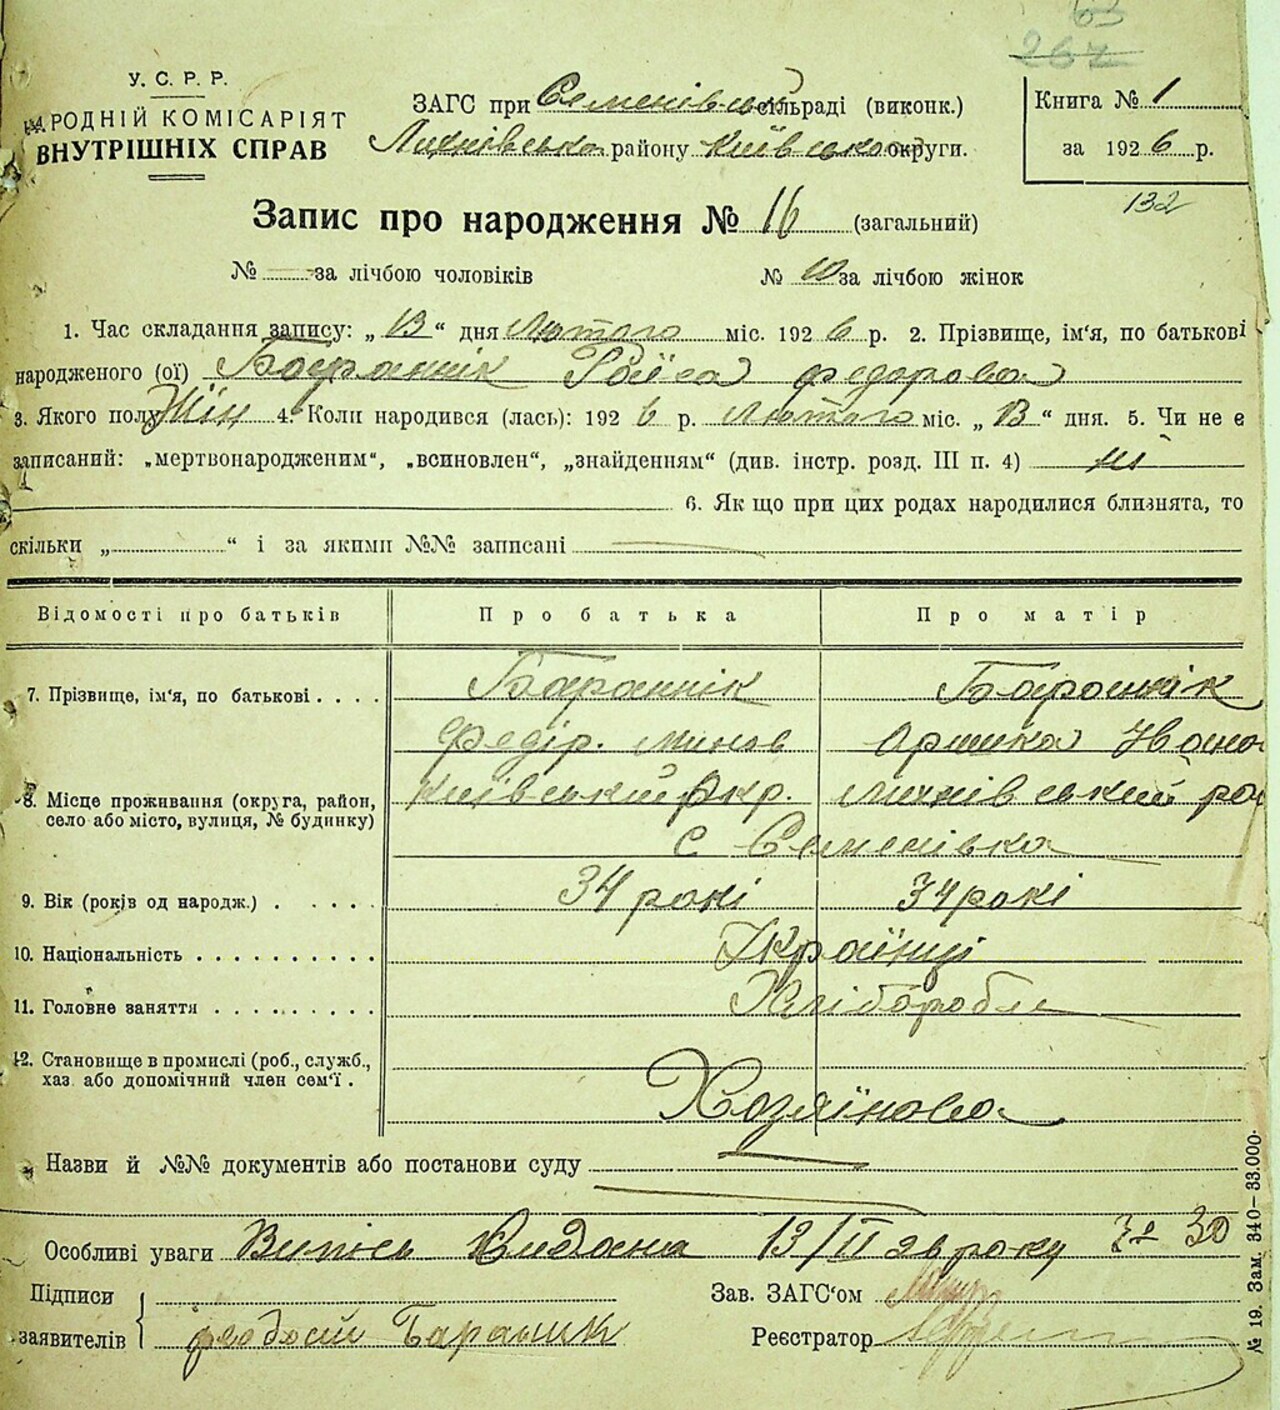 267
У. С. Р. Р.
НАРОДНІЙ КОМІСАРІЯТ
ВНУТРІШНІХ СПРАВ
ЗАГС при Семенівській сільраді (виконк.)
району Київської округи.
Книга № 1
за 1926 р.
132
Запис про народження № 16 (загальний)
№ — за лічбою чоловіків № 10 за лічбою жінок
1. Час складання запису: „13“ дня Лютого міс. 1926 р. 2. Прізвище, ім'я, по батькові
народженого (ої) Бараннік Раїса Федорова
3. Якого полу Жін 4. Коли народився (лась): 1926 р. Лютого міс. „13“ дня. 5. Чи не є
записаний: „мертвонародженим“, „всиновлен“, „знайденням“ (див. інстр. розд. III п. 4) ні
6. Як що при цих родах народилися близнята, то
скільки „ “ і за якими №№ записані —
Відомості про батьків Про батька Про матір
7. Прізвище, ім'я, по батькові . . . . Бараннік Бараннік
Федір. Минов Іванов
8. Місце проживання (округа, район, село або місто, вулиця, № будинку) Київський Окр. рай
с Семенівка
9. Вік (років од народж.) . . . . . 34 рокі 34 рокі
10. Національність . . . . . . . . . . Українці
11. Головне заняття . . . . . . . . . Хлібороби
12. Становище в промислі (роб., служб.,
хаз. або допомічний член сем'ї . Хозяїнова
Назви й №№ документів або постанови суду —
Особливі уваги Випісь Видана 13/II 26 року 30
Підписи
заявителів Феодосій Бараник
Зав. ЗАГС'ом
Реєстратор
№ 19. Зам. 340—33.000.